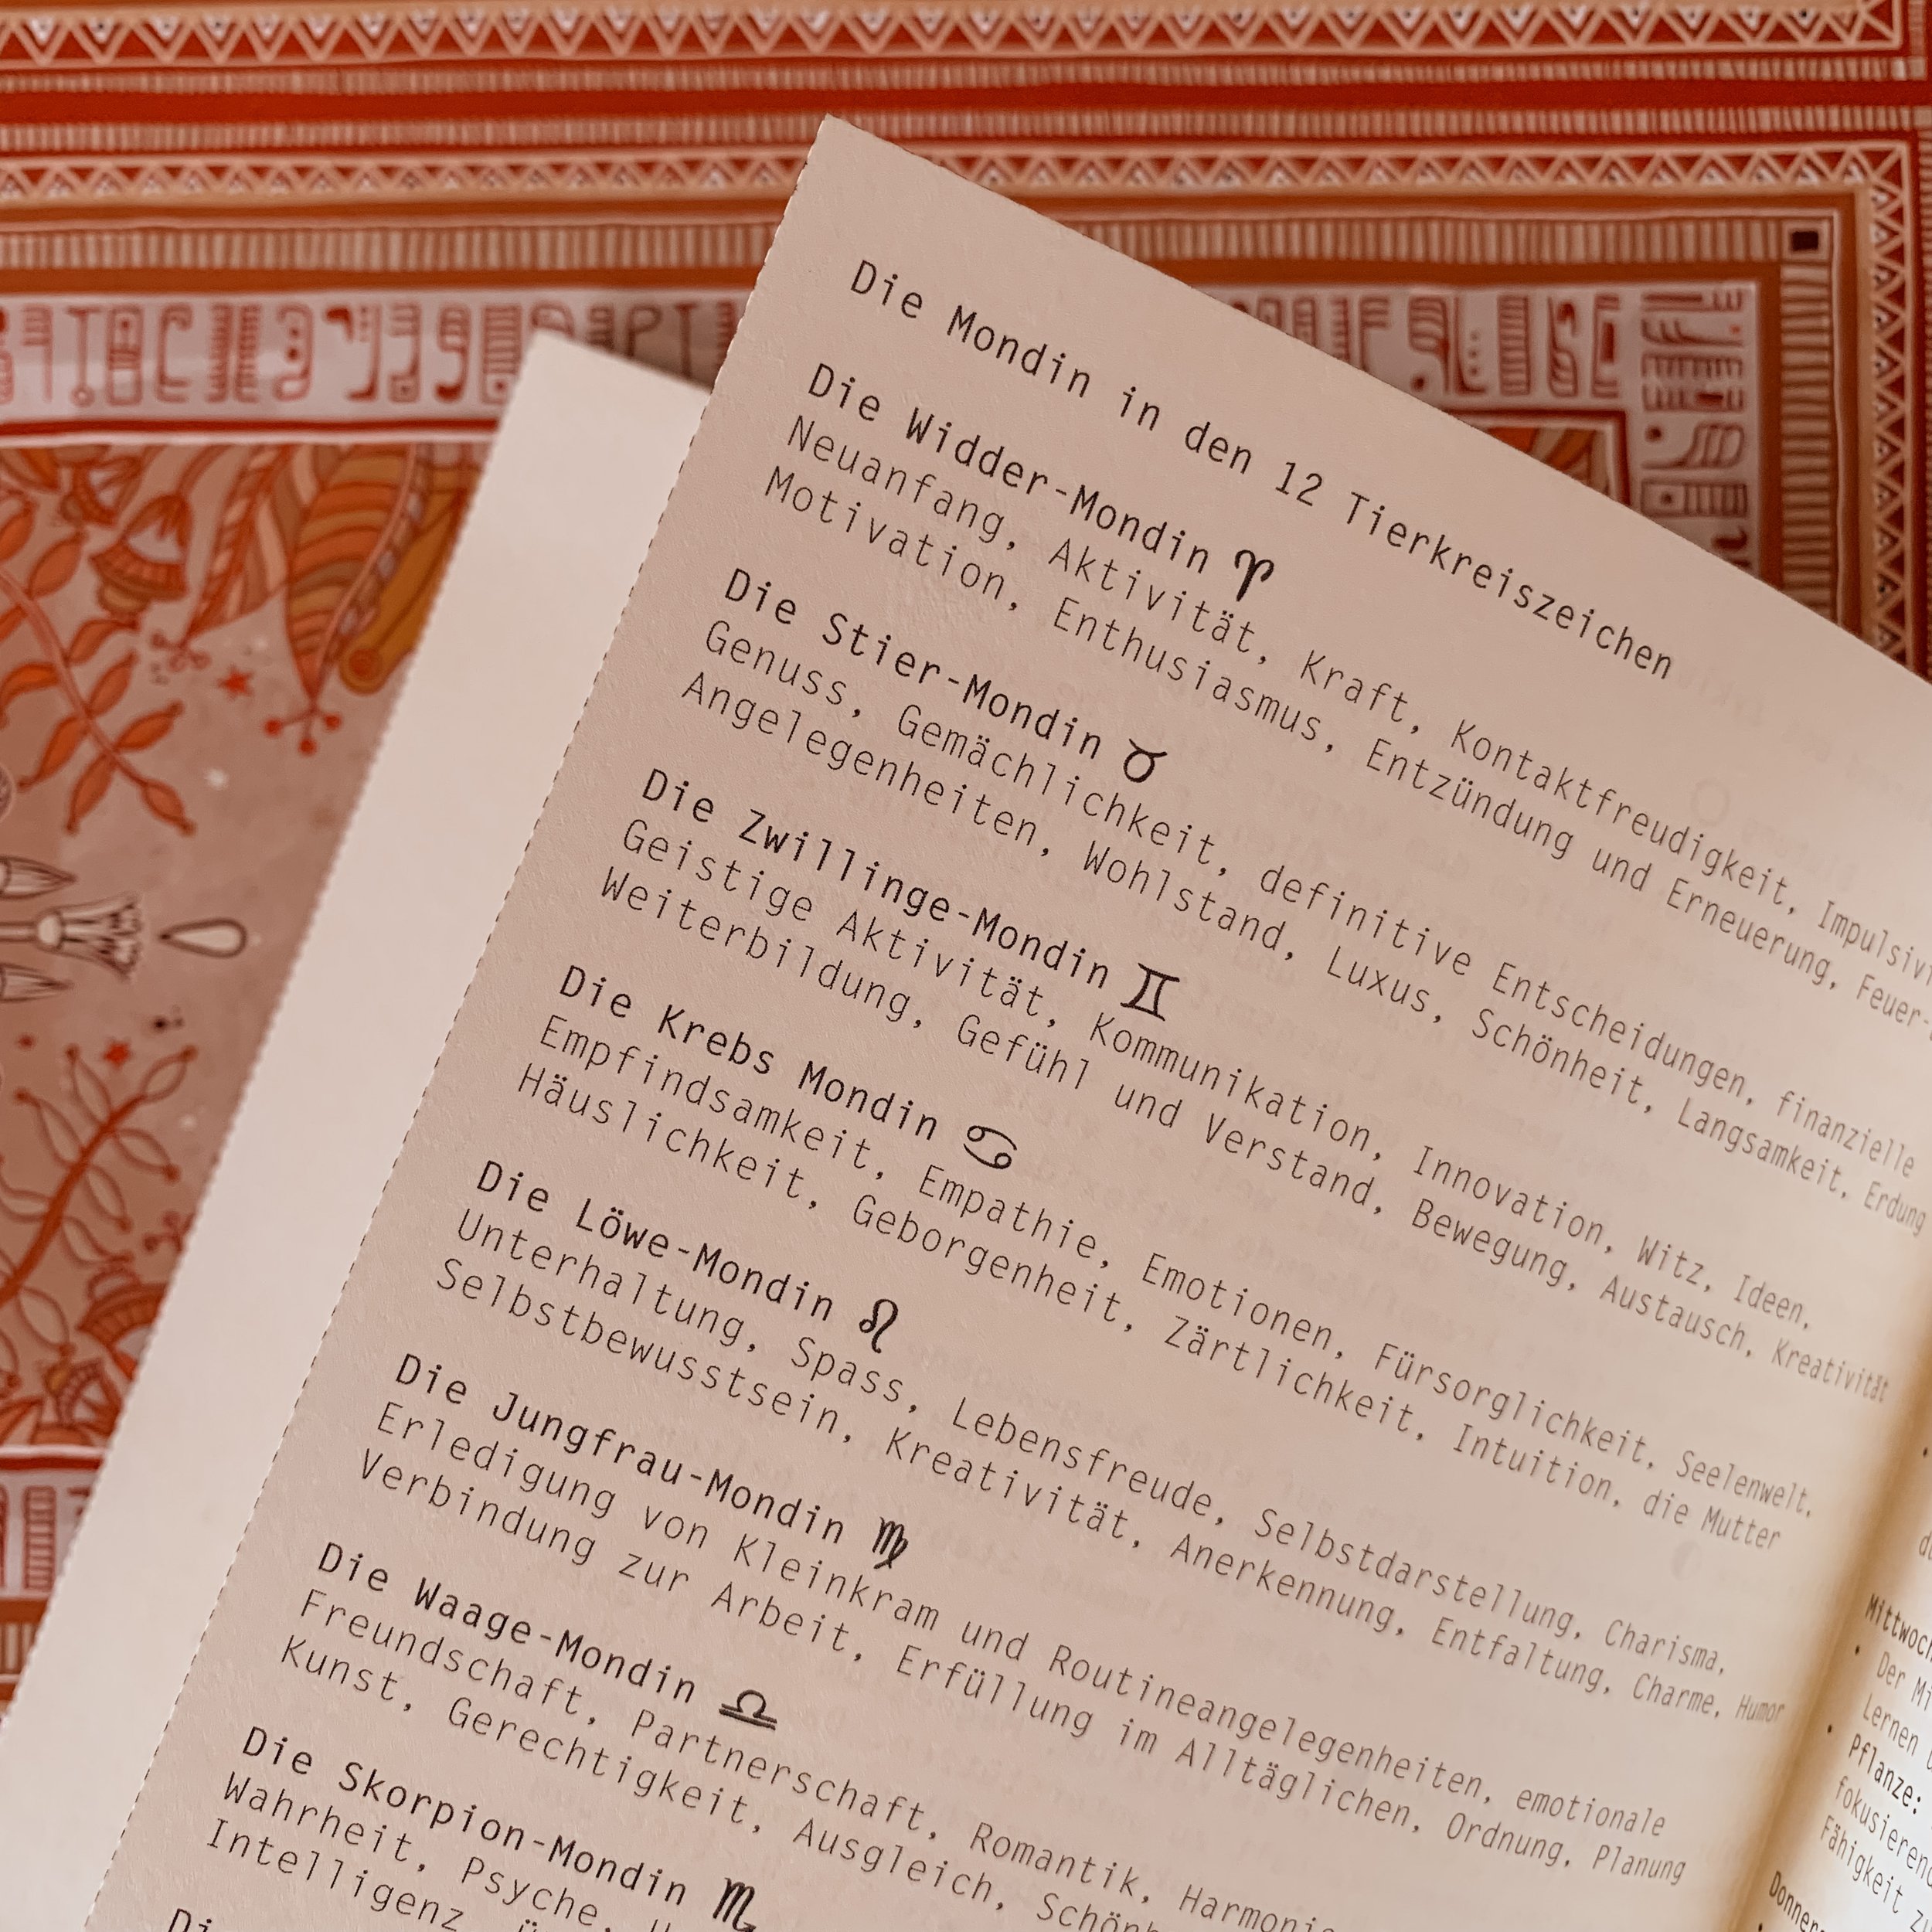 Die Mondin in den 12 Tierkreiszeichen
Die Widder-Mondin ♈
Neuanfang, Aktivität, Kraft, Kontaktfreudigkeit,
Motivation, Enthusiasmus, Entzündung und Erneuerung, Feuer-
Die Stier-Mondin ♉
Genuss, Gemächlichkeit, definitive Entscheidungen, finanzielle
Angelegenheiten, Wohlstand, Luxus, Schönheit, Langsamkeit, Erdung
Die Zwillinge-Mondin ♊
Geistige Aktivität, Kommunikation, Innovation, Witz, Ideen,
Weiterbildung, Gefühl und Verstand, Bewegung, Austausch, Kreativität
Die Krebs Mondin ♋
Empfindsamkeit, Empathie, Emotionen, Fürsorglichkeit, Seelenwelt,
Häuslichkeit, Geborgenheit, Zärtlichkeit, Intuition, die Mutter
Die Löwe-Mondin ♌
Unterhaltung, Spass, Lebensfreude, Selbstdarstellung, Charisma,
Selbstbewusstsein, Kreativität, Anerkennung, Entfaltung, Charme, Humor
Die Jungfrau-Mondin ♍
Erledigung von Kleinkram und Routineangelegenheiten, emotionale
Verbindung zur Arbeit, Erfüllung im Alltäglichen, Ordnung, Planung
Die Waage-Mondin ♎
Freundschaft, Partnerschaft, Romantik,
Kunst, Gerechtigkeit, Ausgleich,
Die Skorpion-Mondin ♏
Wahrheit, Psyche,
Intelligenz
Mittwoch
• Der
Lernen
• Pflanze:
Fähigkeit